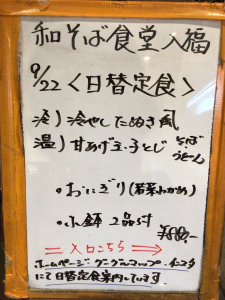 和そば食堂 八福
9/22 〈日替定食〉
冷)冷やしたぬき風
温)甘あげ玉子とじ
そば
うどん
・おにぎり(若菜わかめ)
・小鉢 2品付
¥880-
=入口こちら⇒
ホームページ グーグルマップ・インスタ
にて日替定食案内しています。